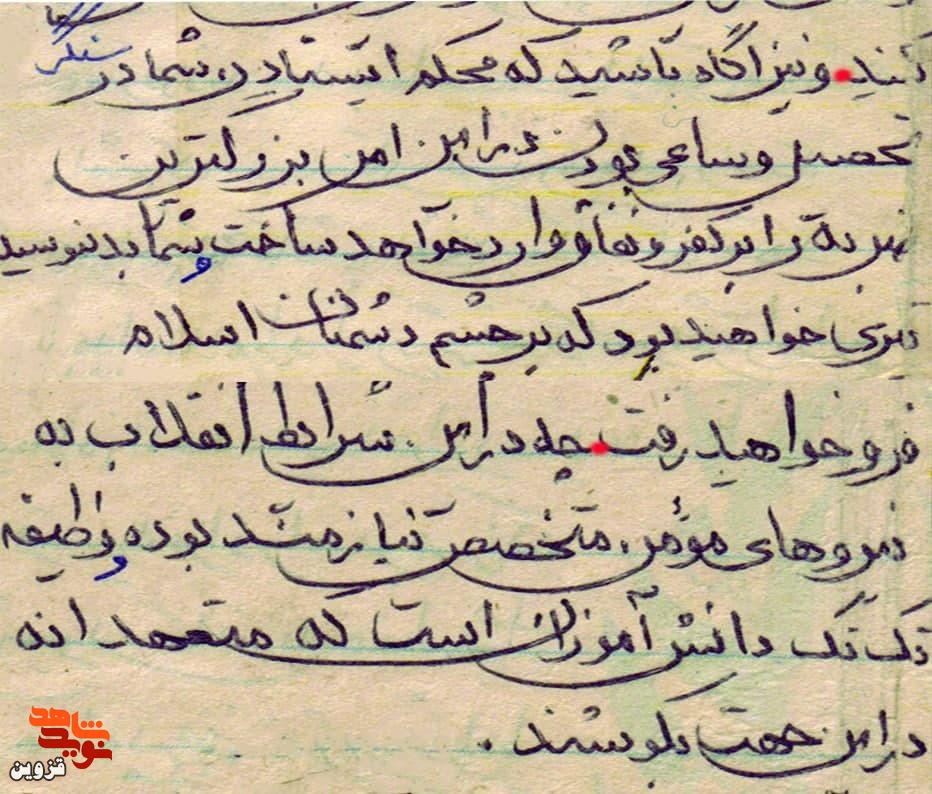 کنید. و نیز آگاه باشید که محکم ایستادن شما در سنگر
تحصیل و ساعی بودن در این امر بزرگترین
ضربه را بر کفر و نفاق وارد خواهد ساخت و شما بدنوسیله
تیری خواهید بود که بر چشم دشمنان اسلام
فرو خواهید رفت. چه در این شرایط انقلاب به
نیروهای مؤمن، متخصص نیازمند بوده و وظیفه
تک تک دانش آموزان است که متعهدانه
در این جهت بکوشند.
نوید شاهد
قزوین